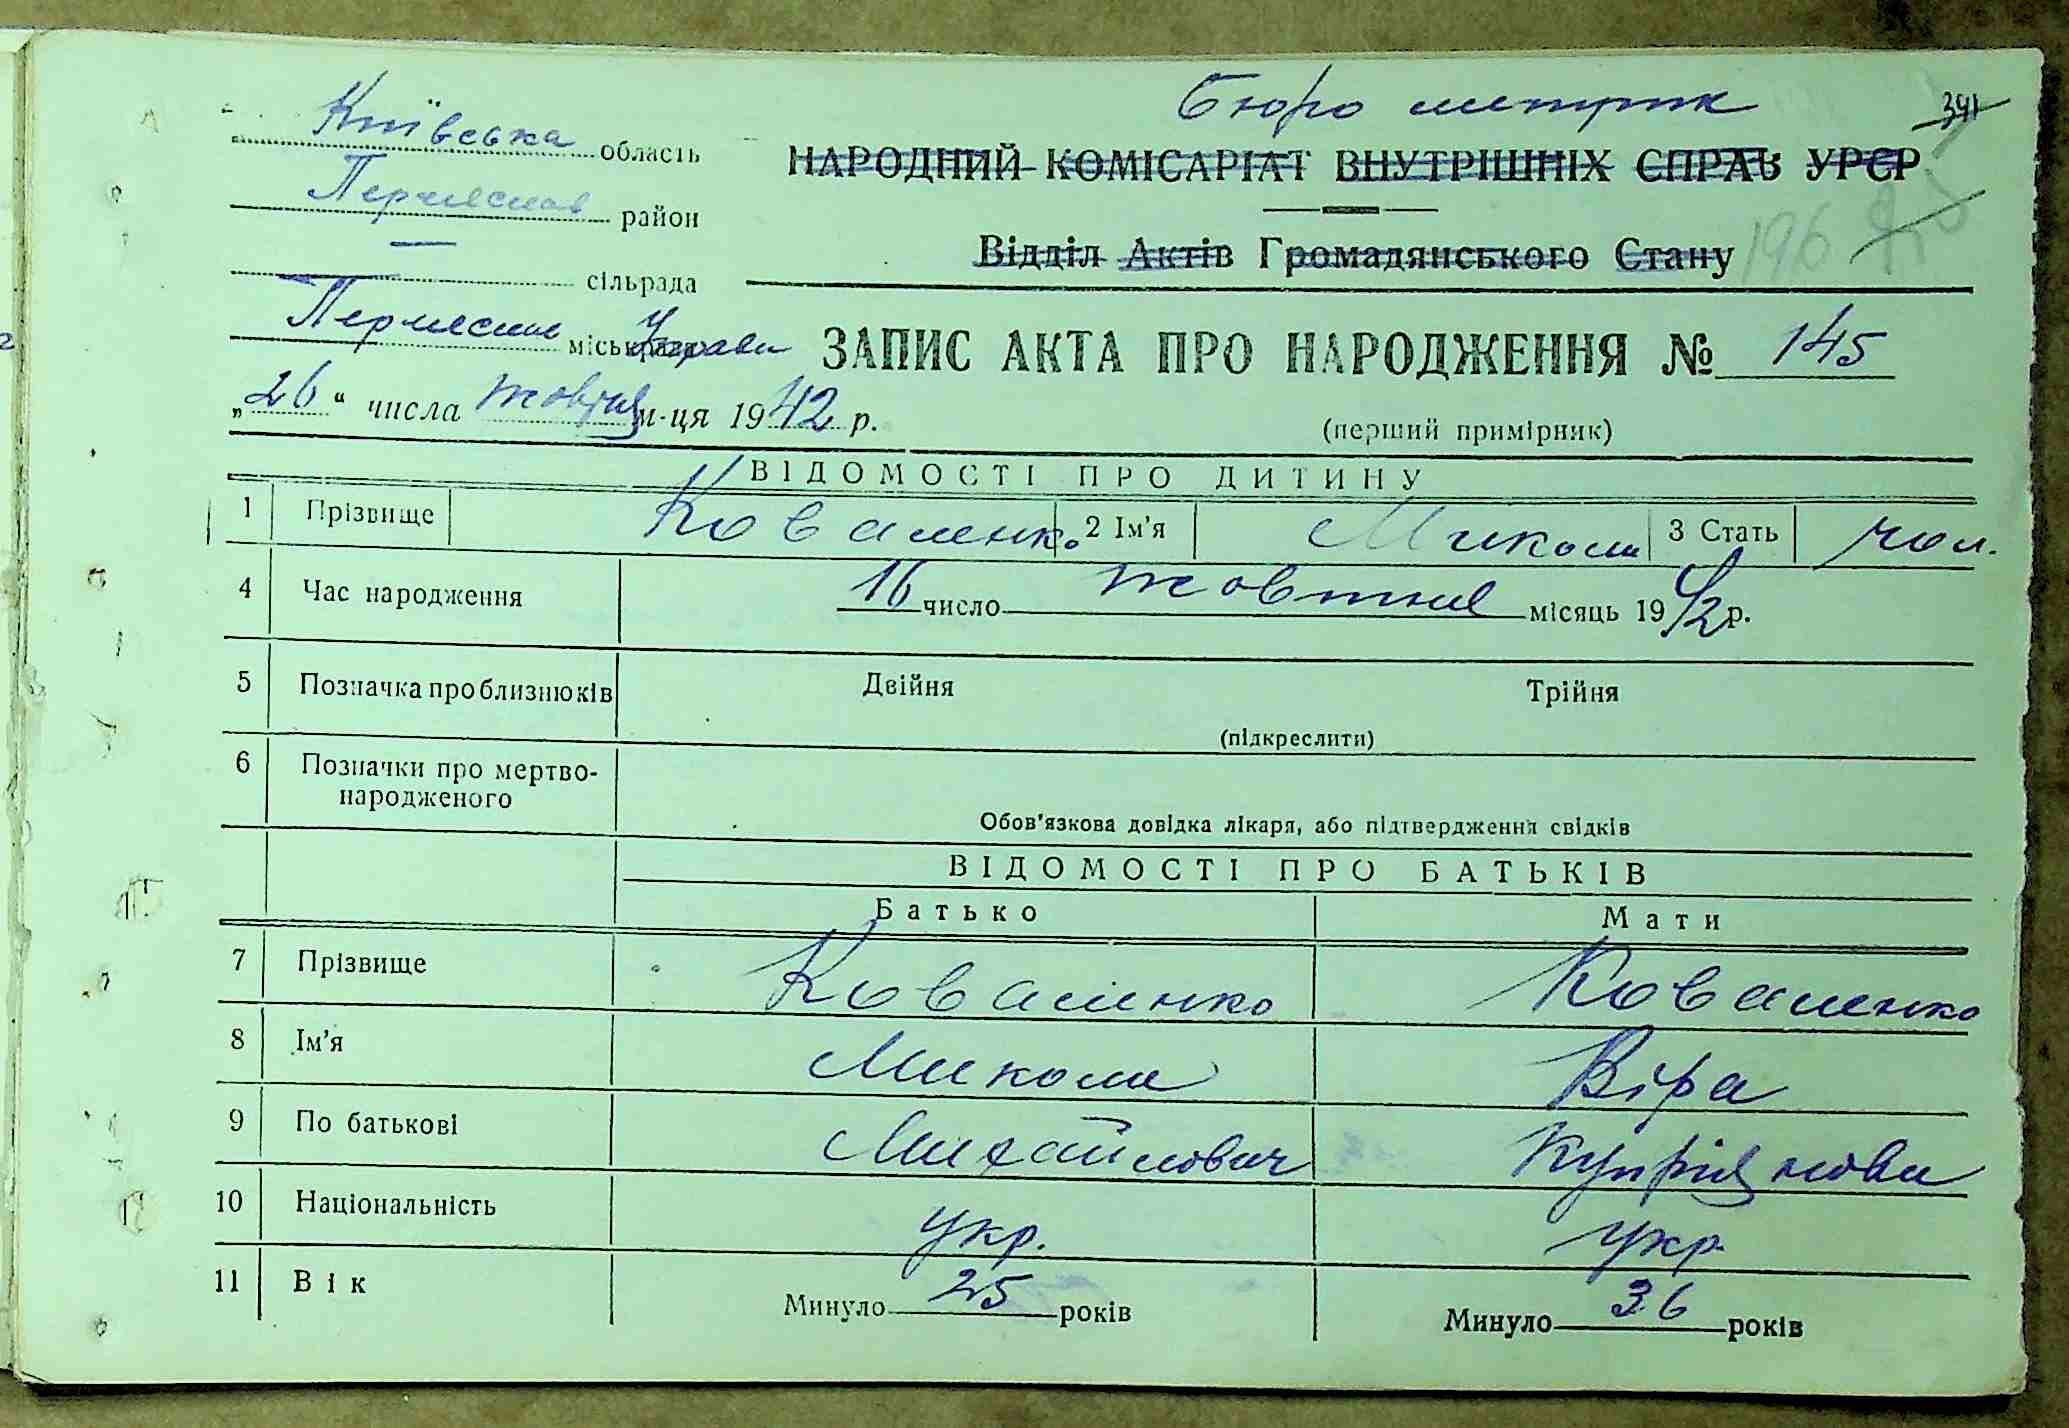 Київська область
Бюро метрик
341
НАРОДНИЙ КОМІСАРІАТ ВНУТРІШНІХ СПРАВ УРСР
Переяслав район
Відділ Актів Громадянського Стану
196
— сільрада
Переяслав міськ Управи
ЗАПИС АКТА ПРО НАРОДЖЕННЯ № 145
„26“ числа жовтня м-ця 1942 р.
(перший примірник)
ВІДОМОСТІ ПРО ДИТИНУ
1 Прізвище Коваленко 2 Ім'я Микола 3 Стать чол.
4 Час народження 16 число жовтня місяць 1942 р.
5 Позначка про близнюків Двійня Трійня
(підкреслити)
6 Позначки про мертво-
народженого
Обов'язкова довідка лікаря, або підтвердження свідків
ВІДОМОСТІ ПРО БАТЬКІВ
Батько Мати
7 Прізвище Коваленко Коваленко
8 Ім'я Микола Віра
9 По батькові Михайлович Купріянова
10 Національність укр. укр
11 Вік Минуло 25 років Минуло 36 років